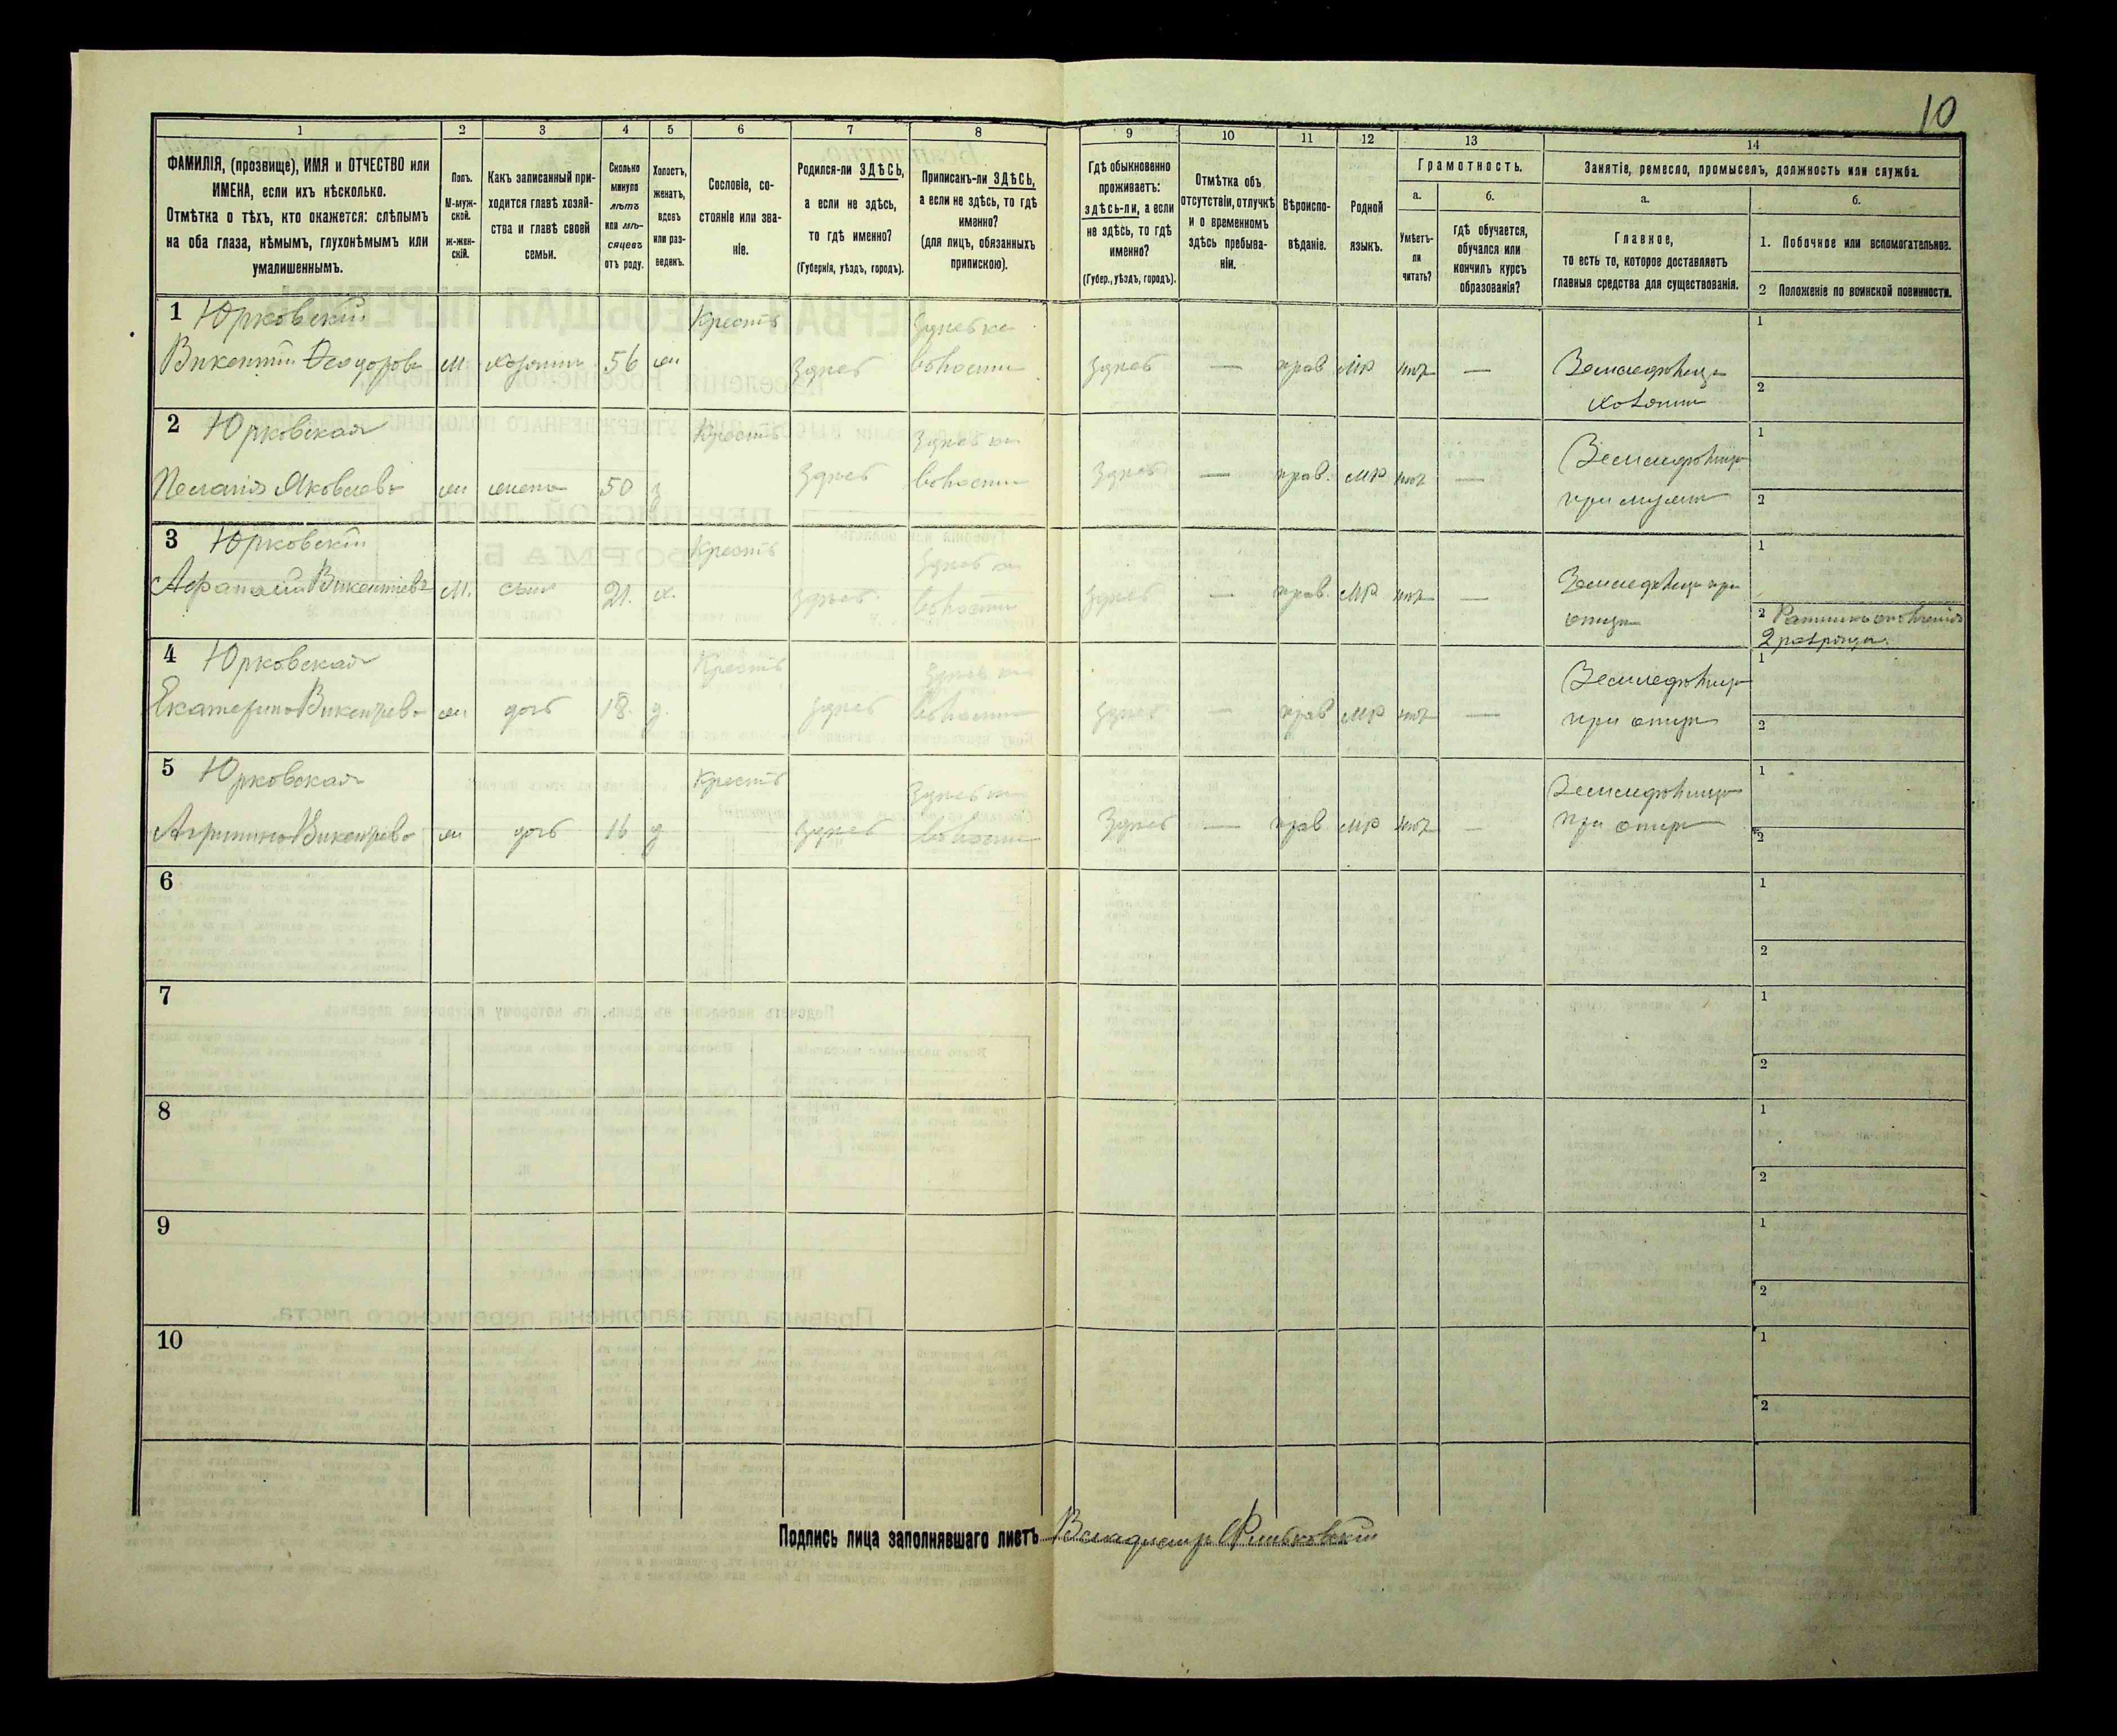 10
1 2 3 4 5 6 7 8 9 10 11 12 13 14
ФАМИЛІЯ, (прозвище), ИМЯ и ОТЧЕСТВО или
ИМЕНА, если ихъ нѣсколько.
Отмѣтка о тѣхъ, кто окажется: слѣпымъ
на оба глаза, нѣмымъ, глухонѣмымъ или
умалишеннымъ.
Полъ.
М-муж-
ской.
ж-жен-
скій.
Какъ записанный при-
ходится главѣ хозяй-
ства и главѣ своей
семьи.
Сколько
минуло
лѣтъ
или мѣ-
сяцевъ
отъ роду.
Холостъ,
женатъ,
вдовъ
или раз-
веденъ.
Сословіе, со-
стояніе или зва-
ніе.
Родился-ли ЗДѢСЬ,
а если не здѣсь,
то гдѣ именно?
(Губернія, уѣздъ, городъ).
Приписанъ-ли ЗДѢСЬ,
а если не здѣсь, то гдѣ
именно?
(для лицъ, обязанныхъ
припискою).
Гдѣ обыкновенно
проживаетъ:
здѣсь-ли, а если
не здѣсь, то гдѣ
именно?
(Губер., уѣздъ, городъ).
Отмѣтка объ
отсутствіи, отлучкѣ
и о временномъ
здѣсь пребыва-
ніи.
Вѣроиспо-
вѣданіе.
Родной
языкъ.
Грамотность.
а.
Умѣетъ-
ли
читать?
б.
гдѣ обучается,
обучался или
кончилъ курсъ
образованія?
Занятіе, ремесло, промыселъ, должность или служба.
а.
Главное,
то есть то, которое доставляетъ
главныя средства для существованія.
б.
1. Побочное или вспомогательное.
2 Положеніе по воинской повинности.
1 Юрковскій Крест. 1
Викентій Ѳеодоров м хозяинъ 56 ж здѣсь волости здѣсь — прав мр нѣт — Земледѣлец
хозяин 2
2 Юрковская Крест. 1
Яковлев ж жена 50 з здѣсь волости здѣсь — прав. мр нѣт — Земледѣлец
при муже 2
3 Юрковскій Крест. 1
Викентіевъ М. сын 21. х. здѣсь волости здѣсь — прав. мр нѣт — Земледѣлец при
отце 2 Ратник ополченія
2 разряда.
4 Юрковская Крест. 1
Екатерина Викентьев ж дочь 18. д. здѣсь волости здѣсь — прав мр нѣт — Земледѣлец
при отце 2
5 Юрковская Крест. 1
Агрипина Викентьев ж дочь 16 д здѣсь волости Здѣсь — прав мр нѣт — Земледѣлец
при отце 2
6 1
2
7 1
2
8 1
2
9 1
2
10 1
2
Подпись лица заполнявшаго листъ